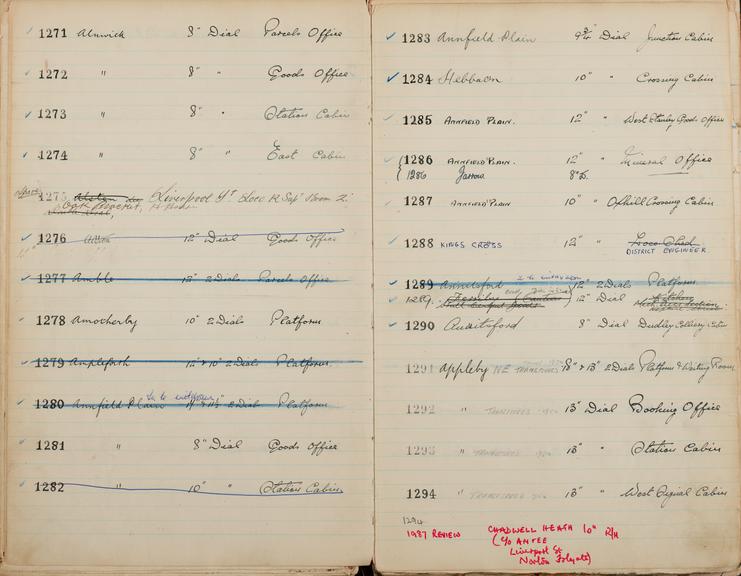 1271 Alnwick 8" Dial Parcels Office
1272 " 8" " Goods Office
1273 " 8" " Station Cabin
1274 " 8" " East Cabin
1275 Liverpool St Loco
1276 12" Dial Goods Office
1277 Amble 12" 2 Dials Parcels Office
1278 Amotherby 10" 2 Dials Platform
1279 Ampleforth 12" & 10" 2 Dials Platform
1280 Annfield Plain 2 Dials Platform
1281 " 8" Dial Goods Office
1282 " 10" " Station Cabin
1283 Annfield Plain 9¾" Dial Junction Cabin
1284 Hebburn 10" " Crossing Cabin
1285 ANNFIELD PLAIN. 12" " West Stanley Goods Office
1286 ANNFIELD PLAIN. 12" " Mineral Office
1286 Jarrow 8"
1287 ANNFIELD PLAIN 10" " Oxhill Crossing Cabin
1288 KINGS CROSS 12" " Loco Shed
DISTRICT ENGINEER
1289 Annitsford 12" 2 Dials Platform
1289. 12" Dial
1290 Annitsford 8" Dial Dudley Colliery Cabin
1291 Appleby NE 18" & 13" 2 Dials Platform & Waiting Room
1292 " 13" Dial Booking Office
1293 " 13" " Station Cabin
1294 " 13" " West Signal Cabin
1294
1987 REVIEW CHADWELL HEATH 10" R/H
(c/o ANTEE
Liverpool St
Norton Folgate)